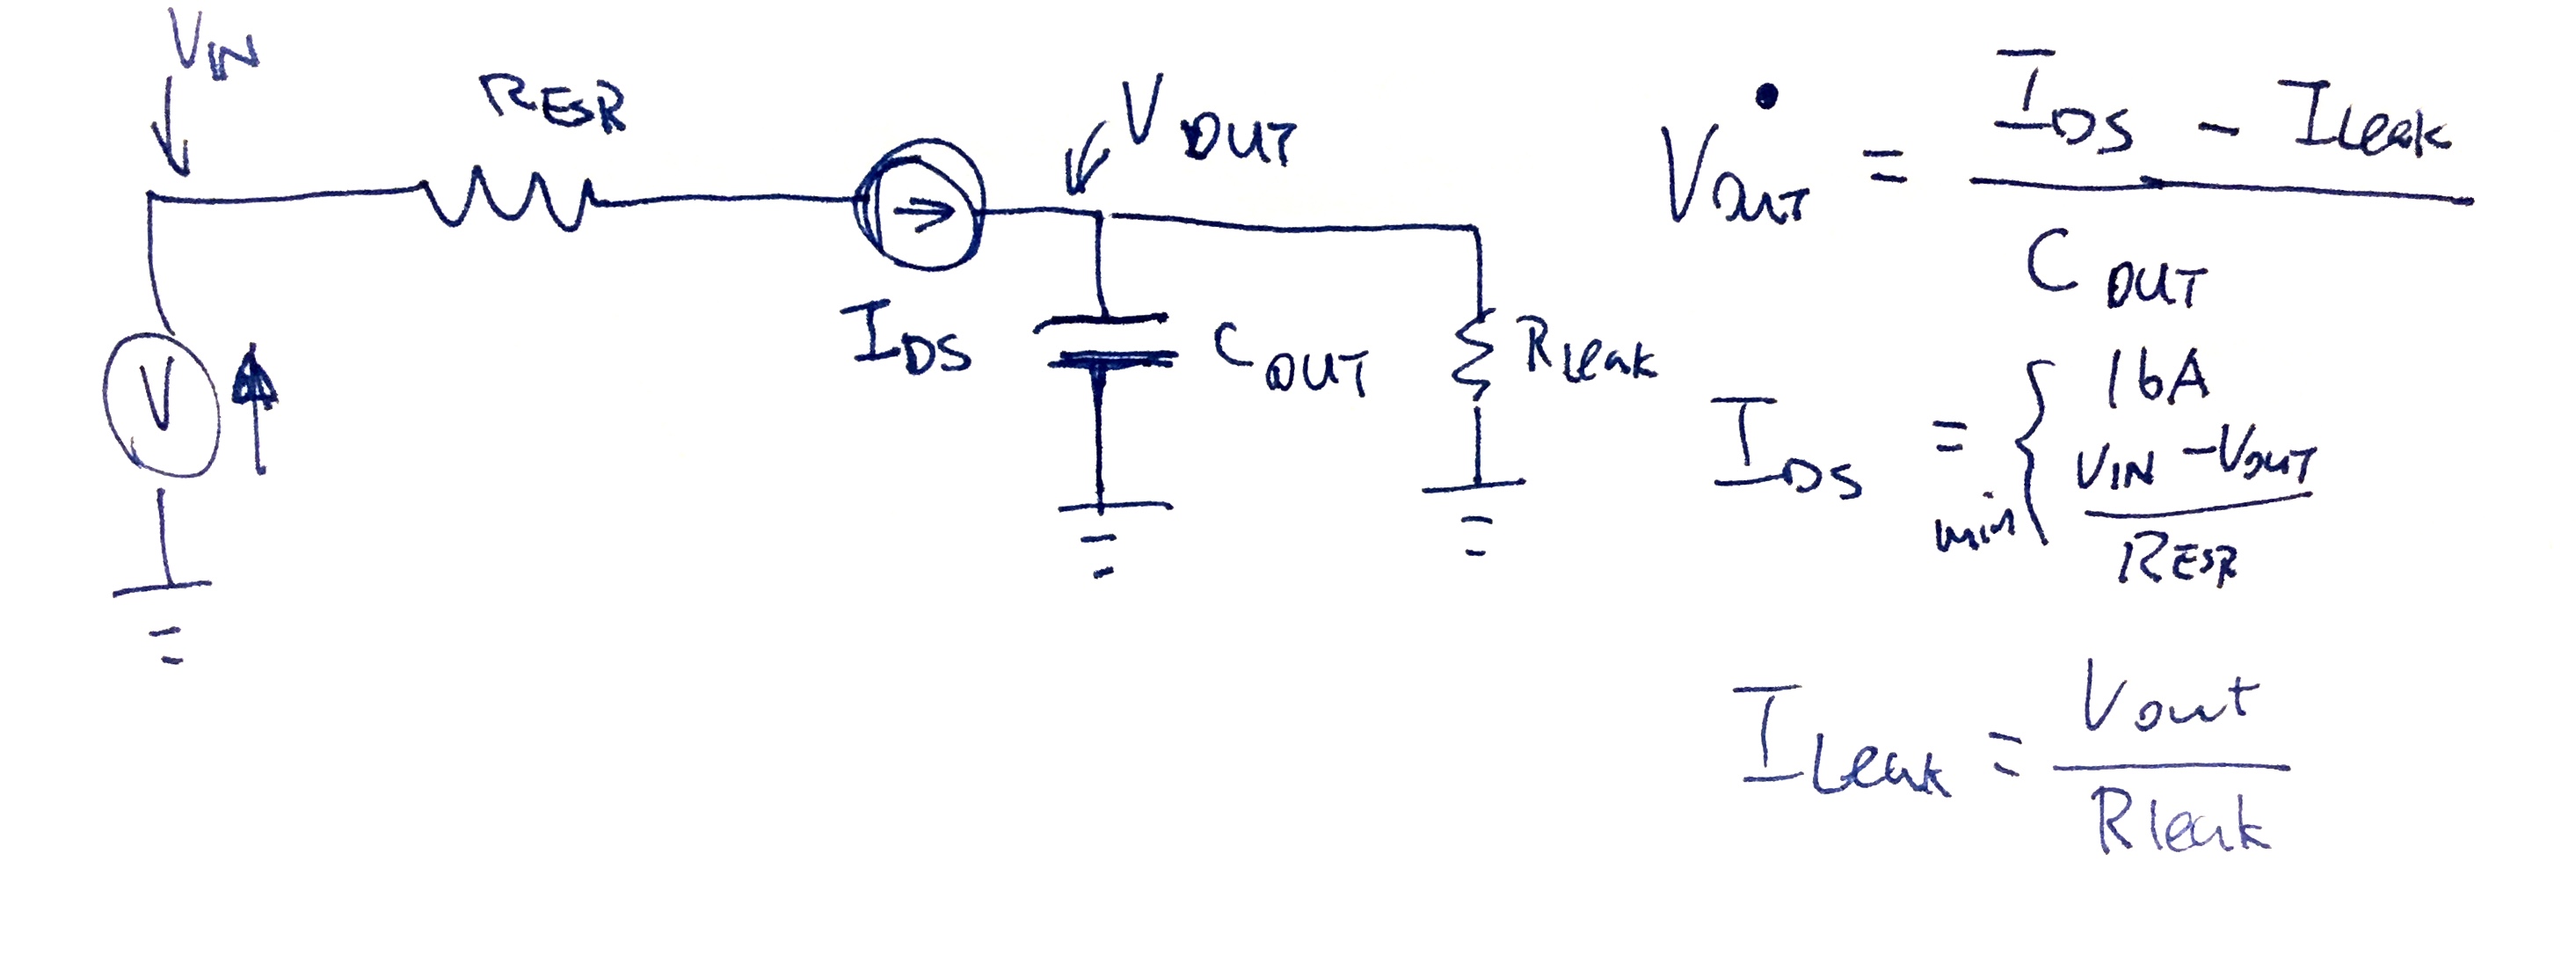 VIN
RESR
VOUT
IDS
V
COUT
Rleak
V̇OUT = IDS - Ileak
COUT
IDS = min { 16A
VIN - VOUT
RESR
ILeak = Vout
Rleak